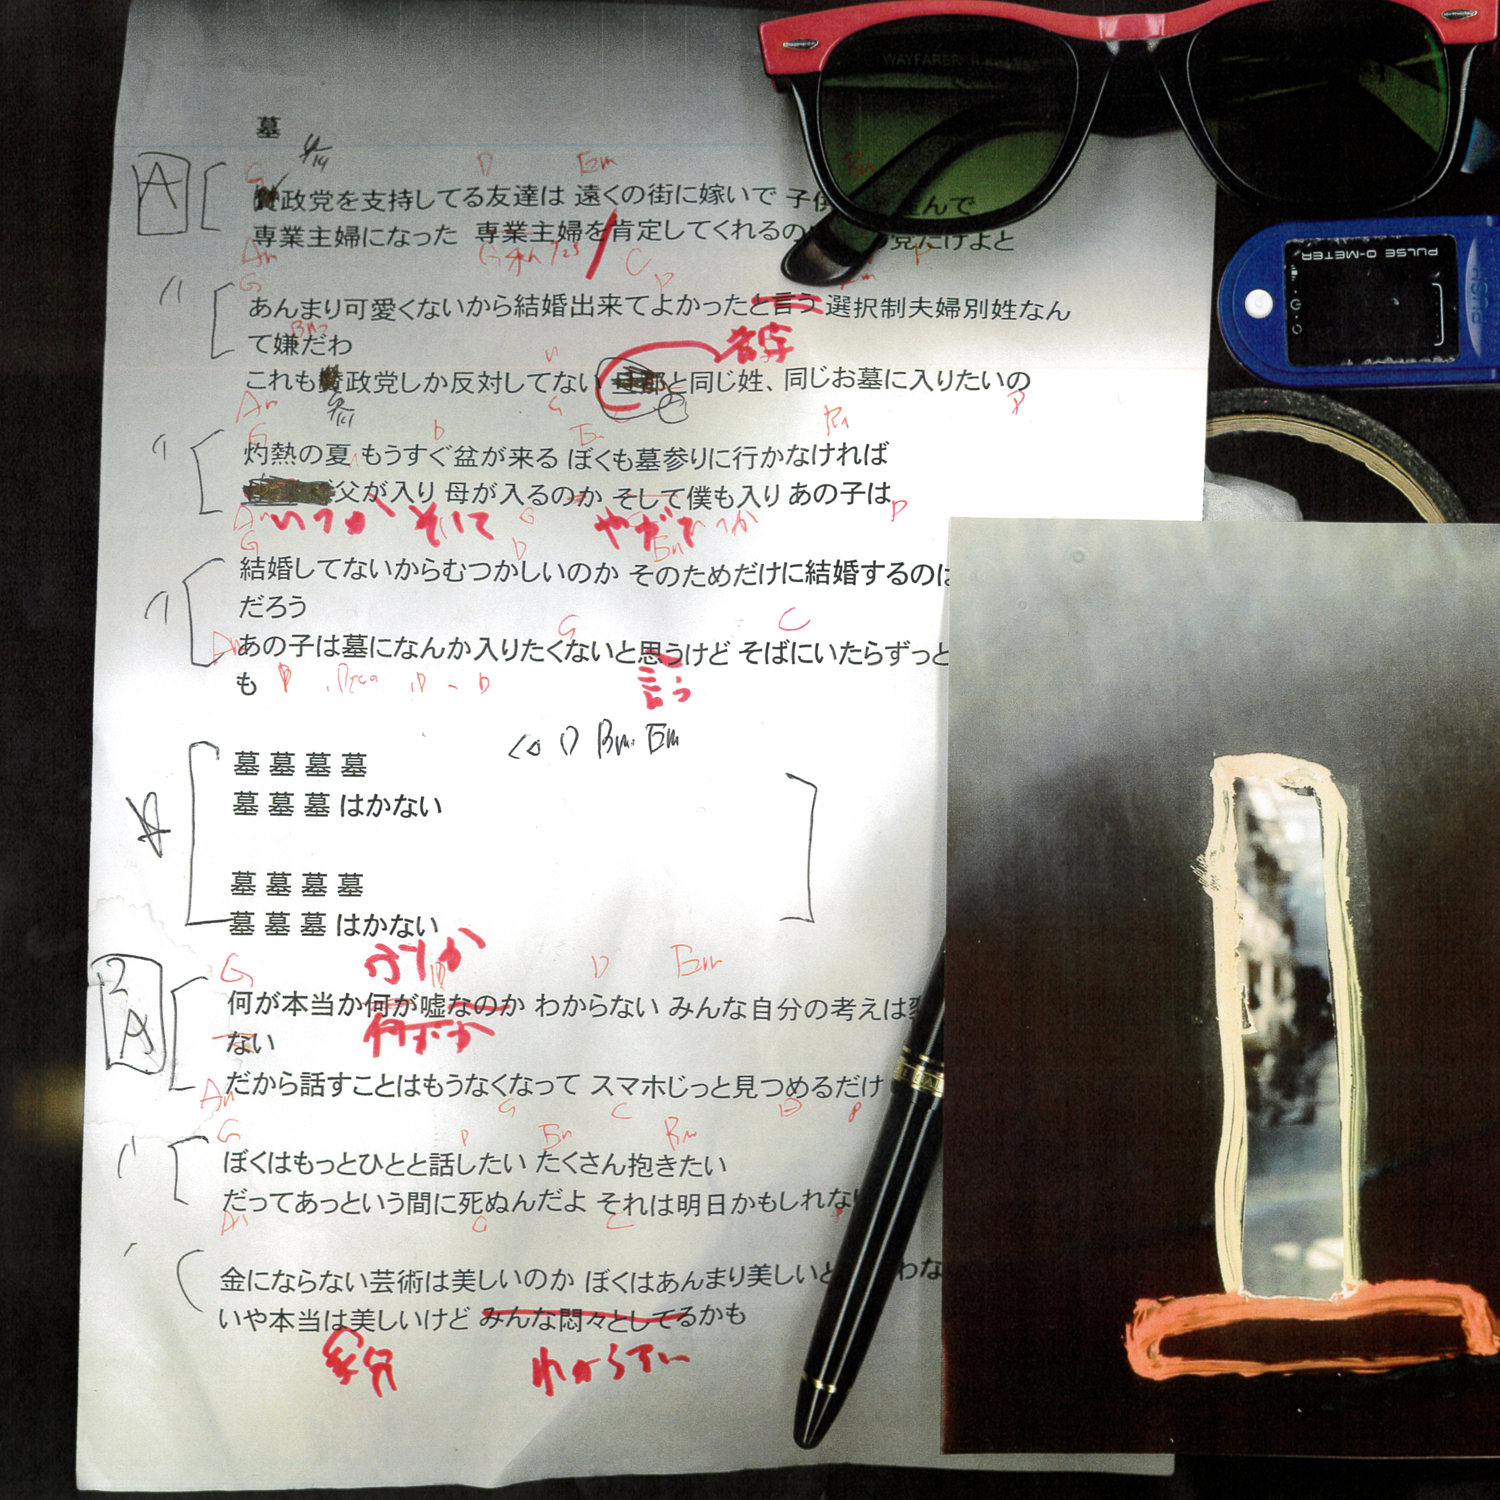 墓
A
G D Em
政党を支持してる友達は 遠くの街に嫁いで 子供 産んで
専業主婦になった 専業主婦を肯定してくれるの 党だけよと
Am C D
G
あんまり可愛くないから結婚出来てよかったと言う 選択制夫婦別姓なん
て嫌だわ
名字
これも 政党しか反対してない 旦那と同じ姓、同じお墓に入りたいの
Am G D
G D Em
灼熱の夏 もうすぐ盆が来る ぼくも墓参りに行かなければ
父が入り 母が入るのか そして僕も入り あの子は
Am いつか そして やがて いつか D
G D Em
結婚してないからむつかしいのか そのためだけに結婚するのは
だろう
G C
Am あの子は墓になんか入りたくないと思うけど そばにいたらずっと
も
言う
D Bm Em
墓 墓 墓 墓
墓 墓 墓 はかない
墓 墓 墓 墓
墓 墓 墓 はかない
2 A
G D Em
何が本当か何が嘘なのか わからない みんな自分の考えは変
何が
ない
だから話すことはもうなくなって スマホじっと見つめるだけ
Am G C D
G D Em Bm
ぼくはもっとひとと話したい たくさん抱きたい
だってあっという間に死ぬんだよ それは明日かもしれない
Am G C
金にならない芸術は美しいのか ぼくはあんまり美しいと わな
いや本当は美しいけど みんな悶々としてるかも
多分 わからない
WAYFARER II
PULSE O-METER
PUSH